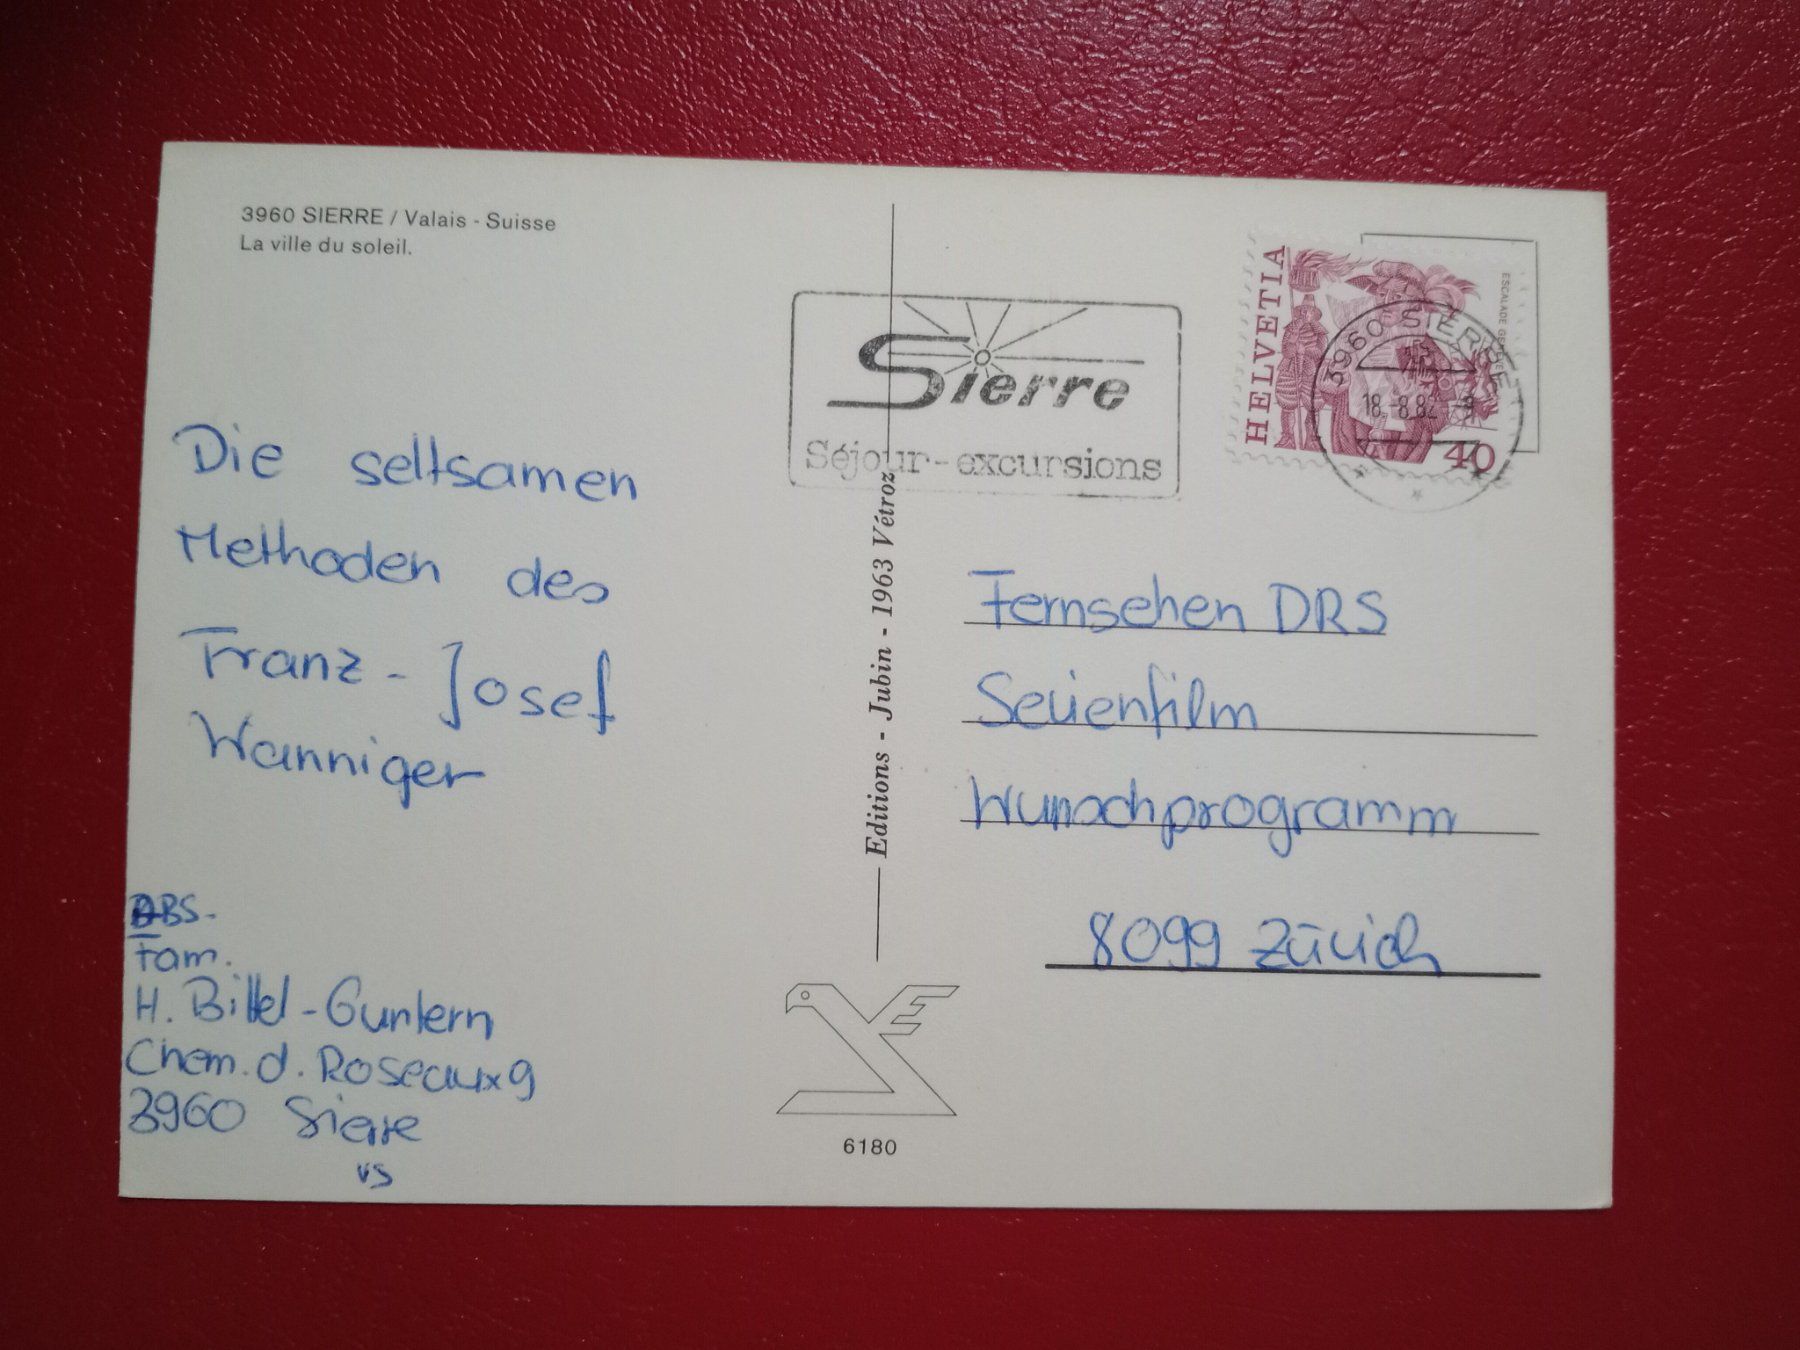 3960 SIERRE / Valais - Suisse
La ville du soleil.
Sierre
Séjour-excursions
HELVETIA
40
3960 SIERRE
18.-8.82 -9
Die seltsamen
Methoden des
Franz-Josef
Wanniger
ABS.
Fam.
H. Bittel-Guntern
Chem. d. Roseaux 9
3960 Sierre
VS
Editions - Jubin - 1963 Vétroz
6180
Fernsehen DRS
Serienfilm
Wunschprogramm
8099 Zürich